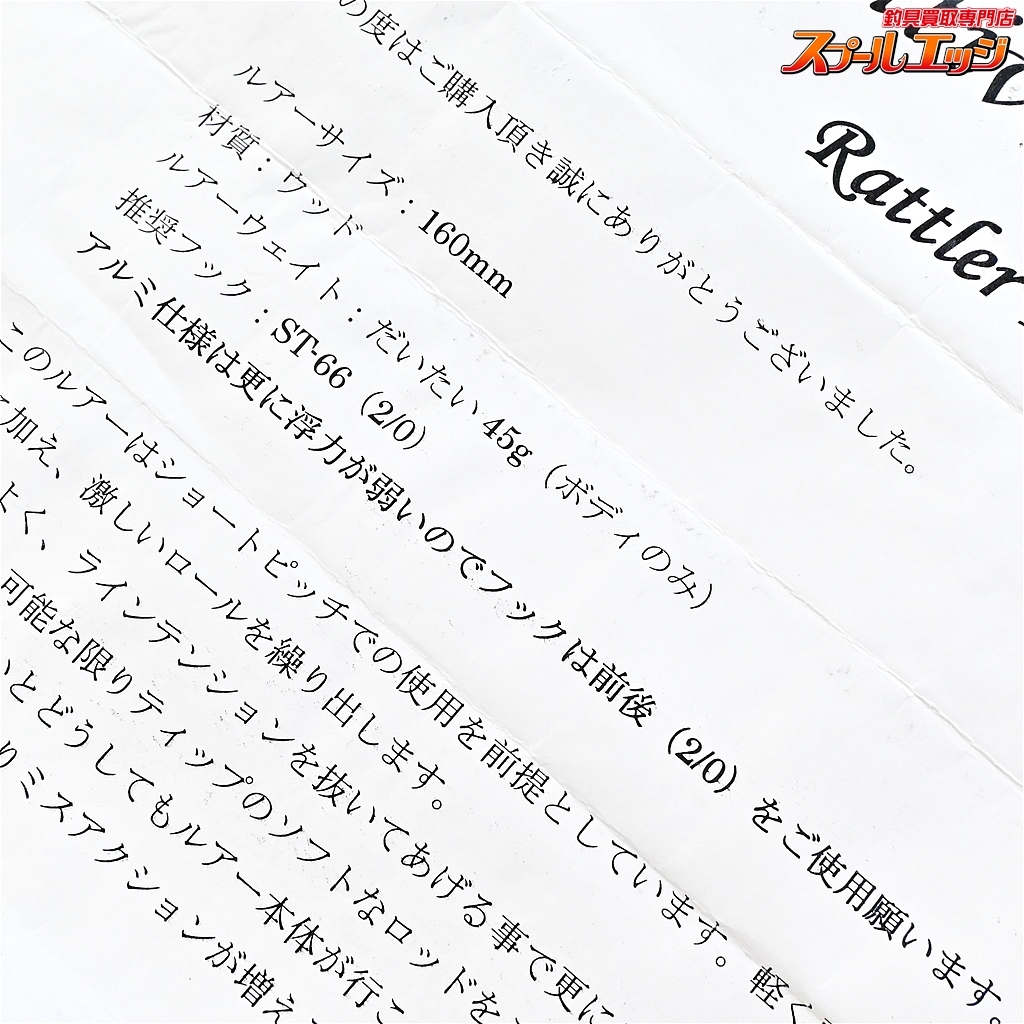 釣具買取専門店
スプールエッジ
Rattler
の度はご購入頂き誠にありがとうございました。
ルアーサイズ：160mm
材質：ウッド
ルアーウェイト：だいたい45g（ボディのみ）
推奨フック：ST-66（2/0）
アルミ仕様は更に浮力が弱いのでフックは前後（2/0）をご使用願います。
このルアーはショートピッチでの使用を前提としています。軽く
加え、激しいロールを繰り出します。
よく、ラインテンションを抜いてあげる事で更に
可能な限りティップのソフトなロッドを
いとどうしてもルアー本体が行こ
りミスアクションが増え